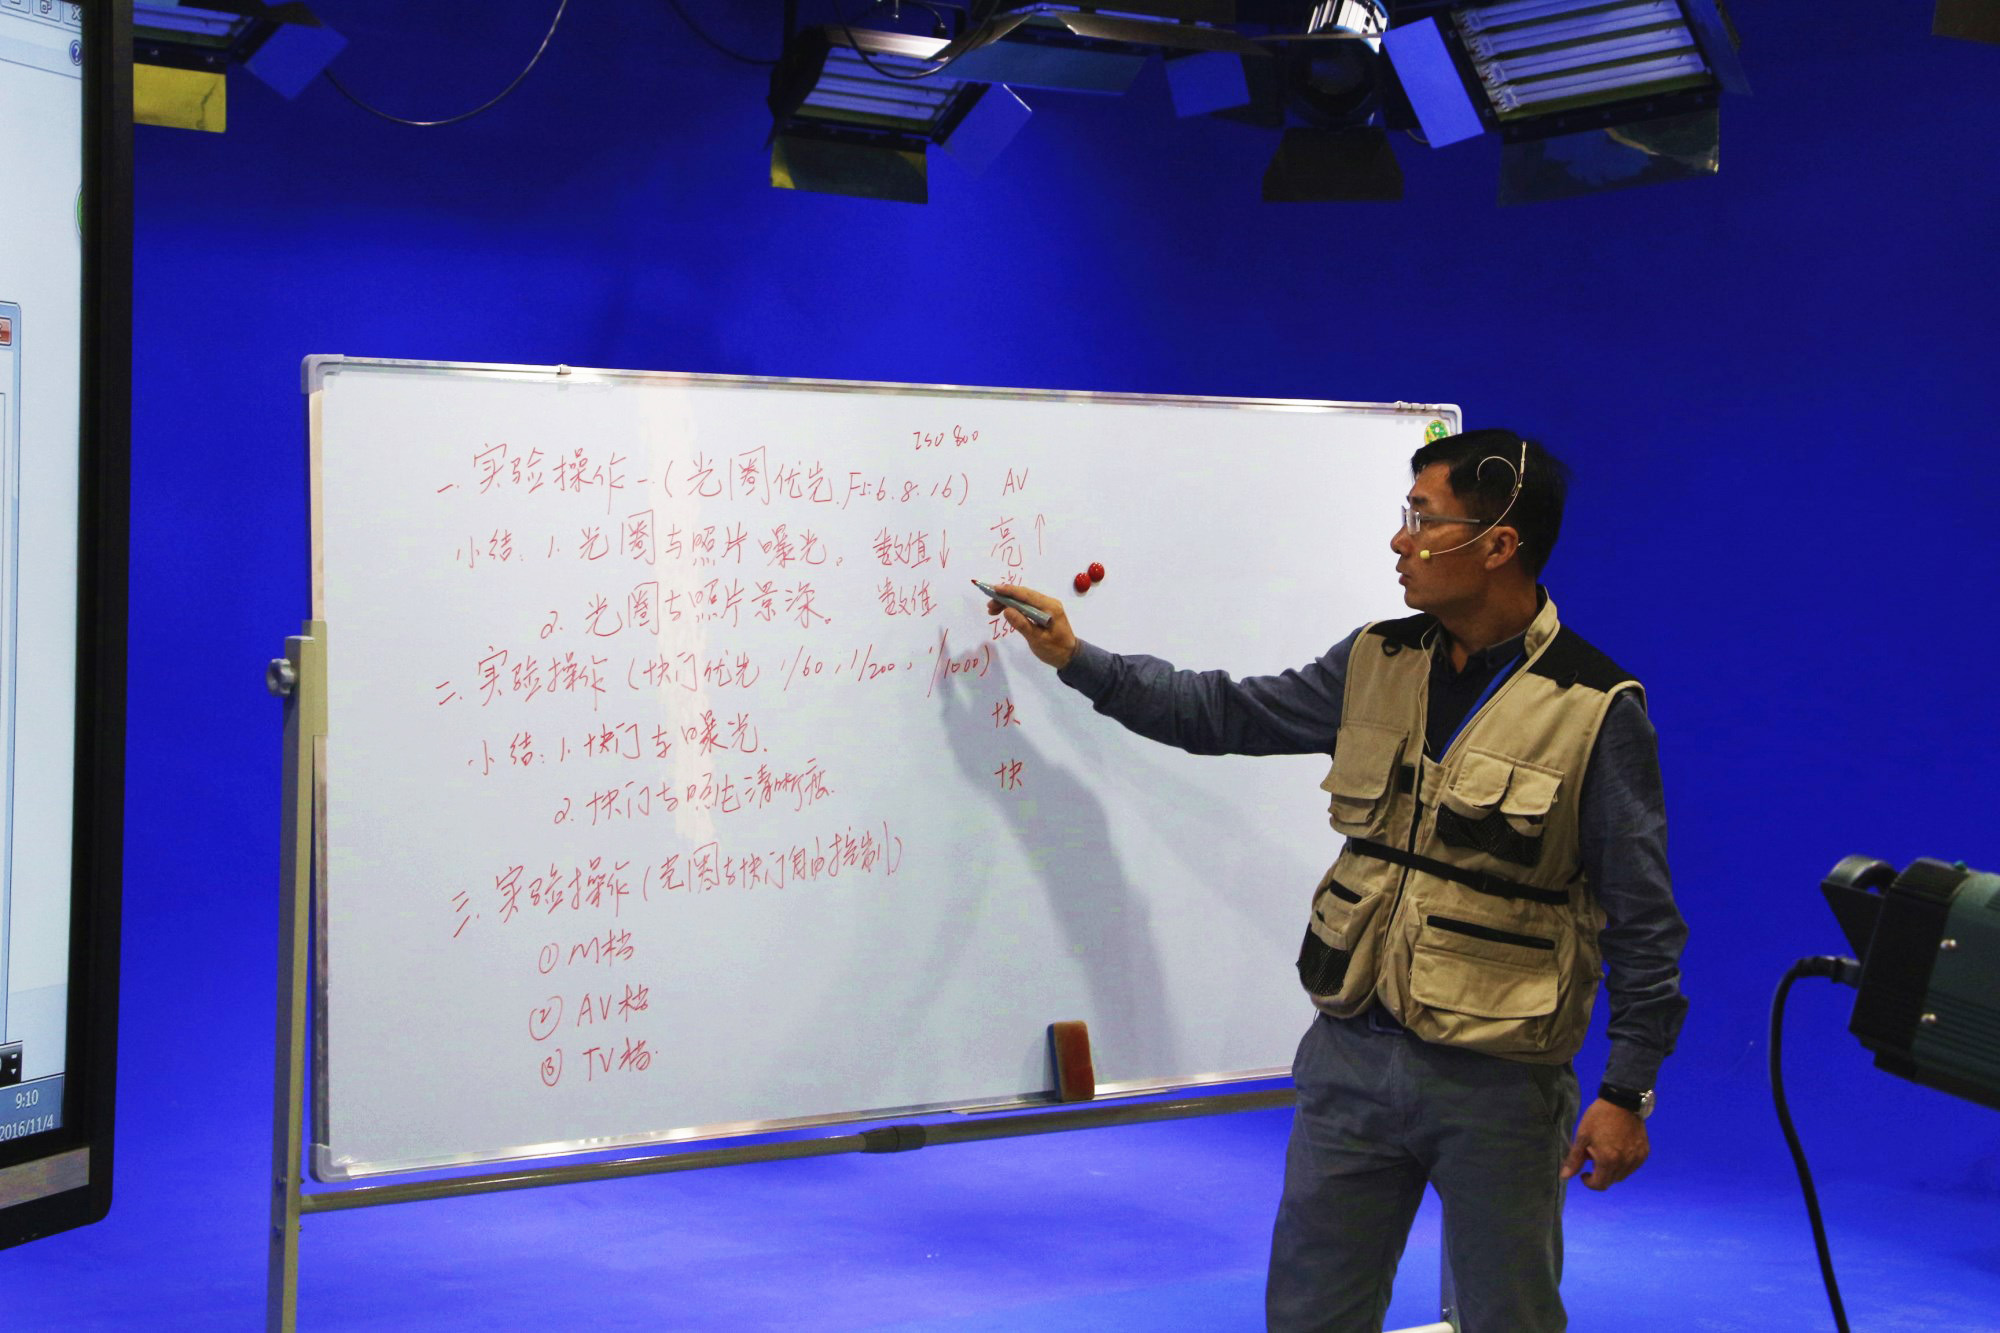 ISO 800
一. 实验操作一(光圈优先. F5.6. 8. 16) AV
小结: 1. 光圈与照片曝光。 数值↓ 亮↑
2. 光圈与照片景深。 数值
ISO
二. 实验操作(快门优先 1/60, 1/200, 1/1000)
小结: 1. 快门与曝光. 快
2. 快门与照片清晰度. 快
三. 实验操作(光圈与快门自由控制)
① M档
② AV档
③ TV档.
9:10
2016/11/4